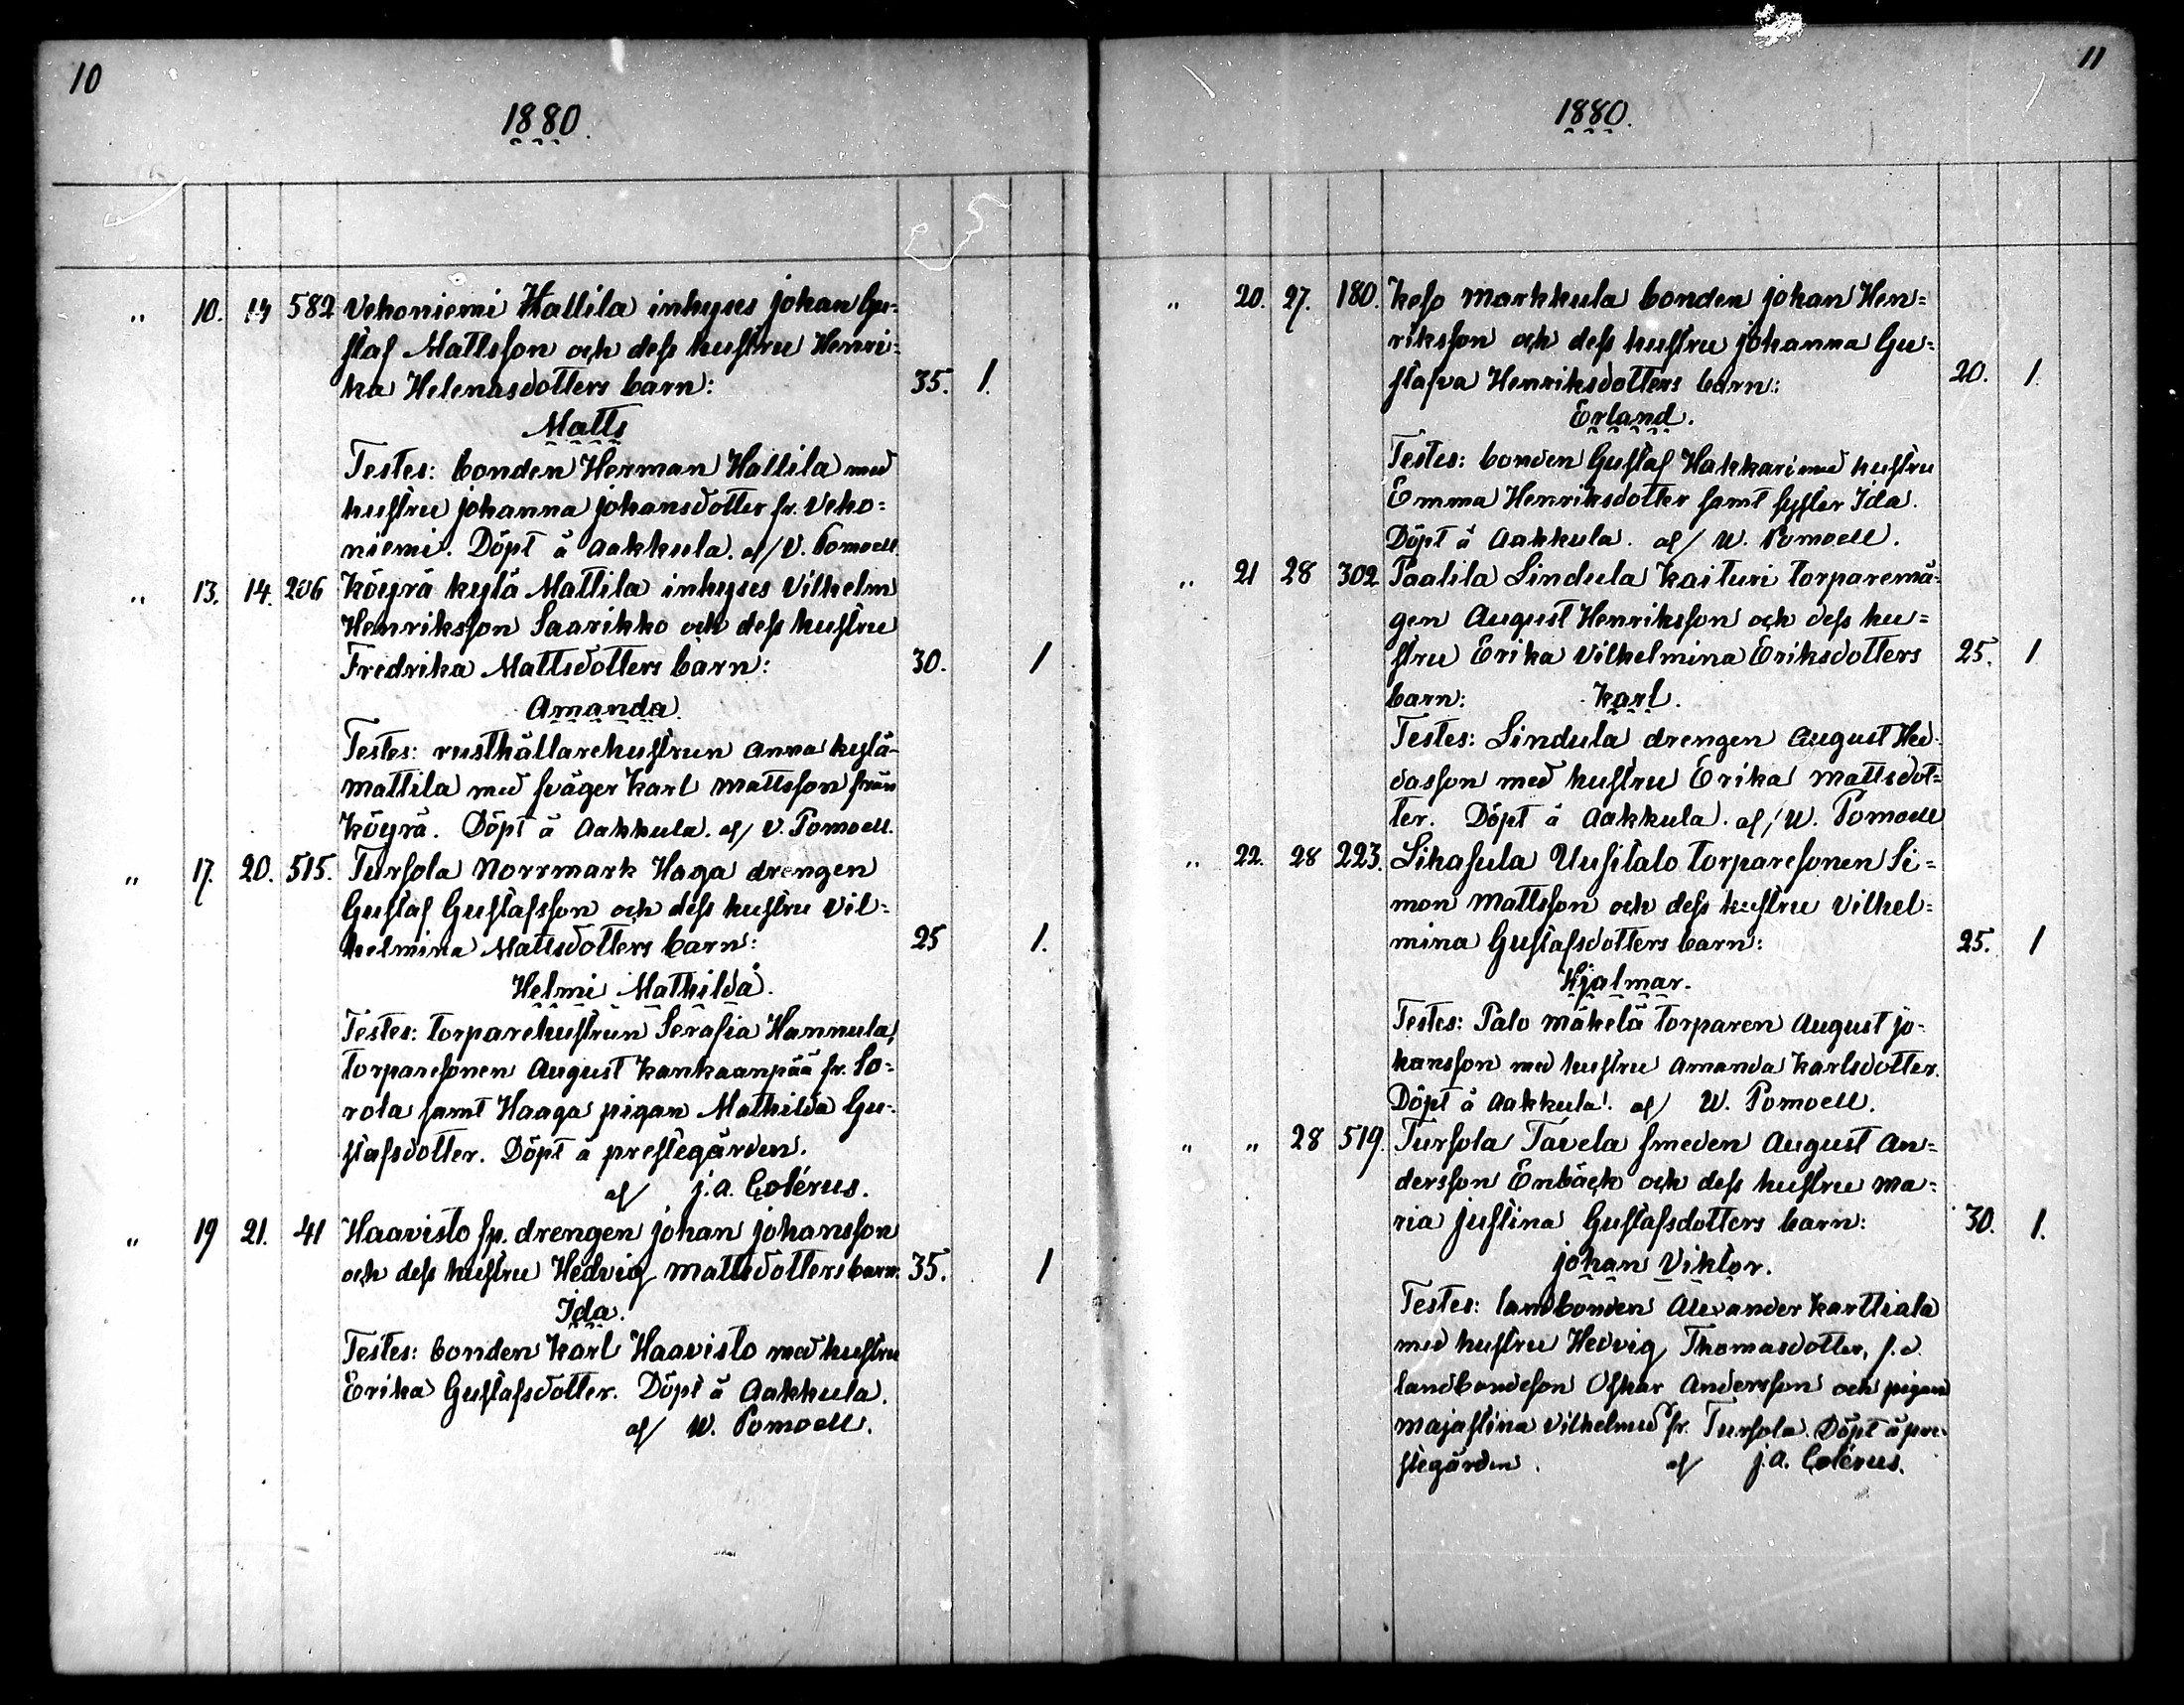 10
1880.
„ 10. 14 582 Vehoniemi Hallila inhyses Johan Gu=
staf Mattsson och dess hustru Henri=
ka Helenasdotters barn: 35. 1.
Matts
Testes: bonden Herman Hallila med
hustru Johanna Johansdotter fr. Veho=
niemi. Döpt å Aakkula. af/ V. Pomoell.
„ 13. 14. 206 Köyrä kylä Mattila inhyses Vilhelm
Henriksson Saarikko och dess hustru
Fredrika Mattsdotters barn: 30. 1
Amanda.
Testes: rusthållarehustrun Anna kylä=
Mattila med svåger Karl Mattsson från
Köyrä. Döpt å Aakkula. af/ V. Pomoell.
„ 17. 20. 515. Tursola Norrmark Haga drengen
Gustaf Gustafsson och dess hustru Vil=
helmina Mattsdotters barn: 25 1.
Helmi Mathilda.
Testes: torparehustrun Serafia Hannula,
torparesonen August Kankaanpää fr. So=
rola samt Haaga pigan Mathilda Gu=
stafsdotter. Döpt å prestegården.
af/ J. A. Colérus.
„ 19 21. 41 Haavisto sp. drengen Johan Johansson
och dess hustru Hedvig Mattsdotters barn: 35. 1
Ida.
Testes: bonden Karl Haavisto med hustru
Erika Gustafsdotter. Döpt å Aakkula.
af/ W. Pomoell.
11
1880.
„ 20. 27. 180. Keso Markkula bonden Johan Hen=
riksson och dess hustru Johanna Gu=
stafva Henriksdotters barn: 20. 1.
Erland.
Testes: bonden Gustaf Hakkari med hustru
Emma Henriksdotter samt syster Ida.
Döpt å Aakkula. af/ W. Pomoell.
„ 21 28 302 Paalila Lindula Kaituri torparemå=
gen August Henriksson och dess hu=
stru Erika Vilhelmina Eriksdotters 25. 1
barn: Karl.
Testes: Lindula drengen August Hed=
dasson med hustru Erika Mattsdot=
ter. Döpt å Aakkula. af/ W. Pomoell
„ 22. 28 223. Lihasula Uusitalo torparesonen Si=
mon Mattsson och dess hustru Vilhel=
mina Gustafsdotters barn: 25. 1
Hjalmar.
Testes: Palo Mäkelä torparen August Jo=
hansson med hustru Amanda Karlsdotter.
Döpt å Aakkula. af/ W. Pomoell.
„ „ 28 519. Tursola Tavela smeden August An=
dersson Enbäck och dess hustru Ma=
ria Justina Gustafsdotters barn: 30. 1.
Johan Viktor.
Testes: landbonden Alexander Karttiala
med hustru Hedvig Thomasdotter, f. d.
landbondeson Oskar Andersson och pigan
Majastina Vilhelmsd fr. Tursola. Döpt å pre=
stegården. af/ J. A. Colérus.